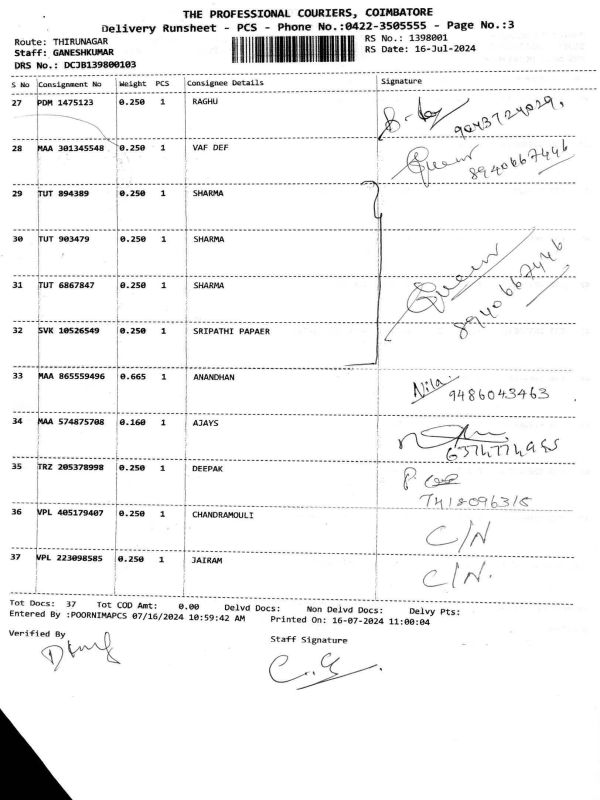 THE PROFESSIONAL COURIERS, COIMBATORE
Delivery Runsheet - PCS - Phone No.:0422-3505555 - Page No.:3
Route: THIRUNAGAR RS No.: 1398001
Staff: GANESHKUMAR RS Date: 16-Jul-2024
DRS No.: DCJB139800103
S No Consignment No Weight PCS Consignee Details Signature
27 PDM 1475123 0.250 1 RAGHU
9043724029,
28 MAA 301345548 0.250 1 VAF DEF
8940667446
29 TUT 894389 0.250 1 SHARMA
30 TUT 903479 0.250 1 SHARMA
31 TUT 6867847 0.250 1 SHARMA
8940667446
32 SVK 10526549 0.250 1 SRIPATHI PAPAER
33 MAA 865559496 0.665 1 ANANDHAN Nila.
9486043463
34 MAA 574875708 0.160 1 AJAYS
35 TRZ 205378998 0.250 1 DEEPAK
36 VPL 405179407 0.250 1 CHANDRAMOULI C/N
37 VPL 223098585 0.250 1 JAIRAM C/N.
Tot Docs: 37 Tot COD Amt: 0.00 Delvd Docs: Non Delvd Docs: Delvy Pts:
Entered By :POORNIMAPCS 07/16/2024 10:59:42 AM Printed On: 16-07-2024 11:00:04
Verified By Staff Signature